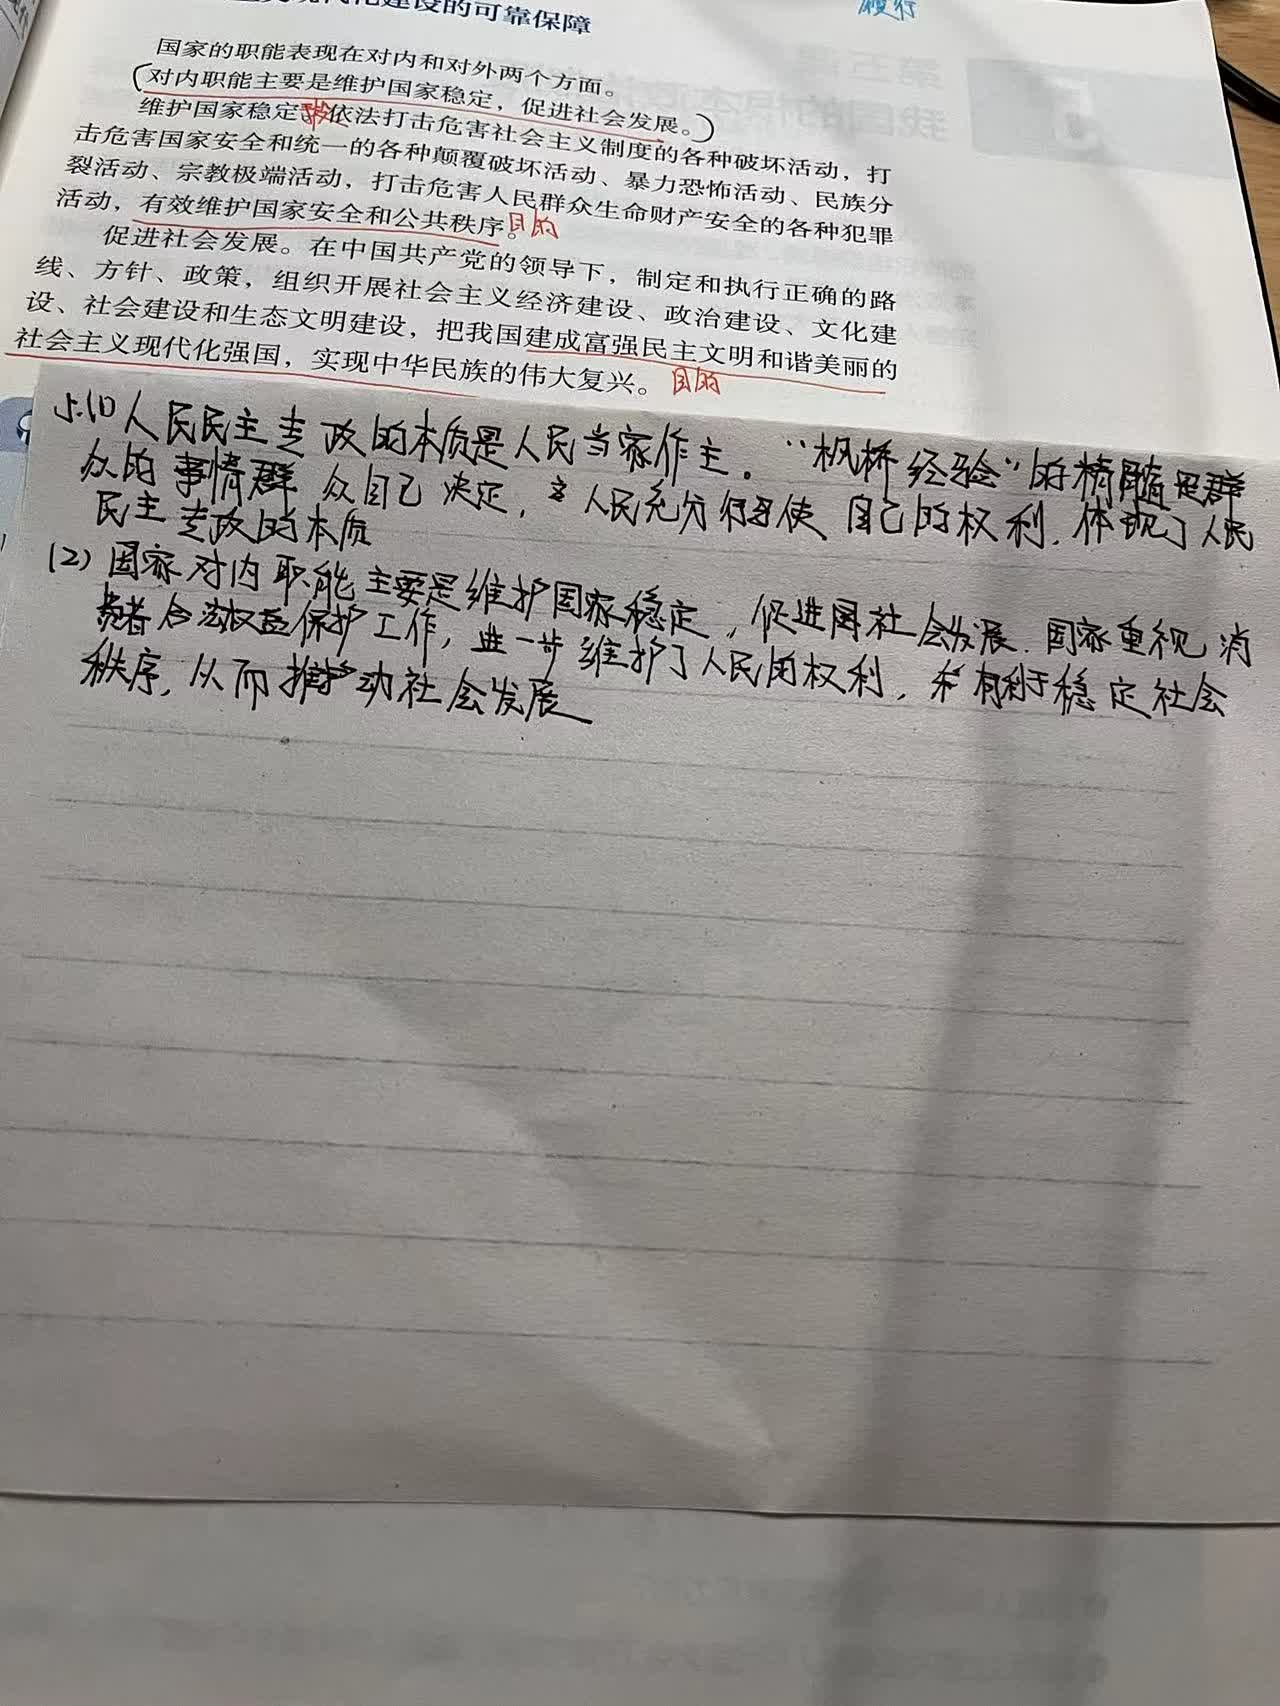 现代化建设的可靠保障
履行
国家的职能表现在对内和对外两个方面。
(对内职能主要是维护国家稳定，促进社会发展。)
维护国家稳定依法打击危害社会主义制度的各种破坏活动，打
击危害国家安全和统一的各种颠覆破坏活动、暴力恐怖活动、民族分
裂活动、宗教极端活动，打击危害人民群众生命财产安全的各种犯罪
活动，有效维护国家安全和公共秩序。目的
促进社会发展。在中国共产党的领导下，制定和执行正确的路
线、方针、政策，组织开展社会主义经济建设、政治建设、文化建
设、社会建设和生态文明建设，把我国建成富强民主文明和谐美丽的
社会主义现代化强国，实现中华民族的伟大复兴。目的
5.(1)人民民主专政的本质是人民当家作主。“枫桥经验”的精髓是群
众的事情群众自己决定，人民充分行使自己的权利，体现了人民
民主专政的本质
(2)国家对内职能主要是维护国家稳定，促进社会发展.国家重视消
费者合法权益保护工作，进一步维护了人民的权利，有利于稳定社会
秩序，从而推动社会发展